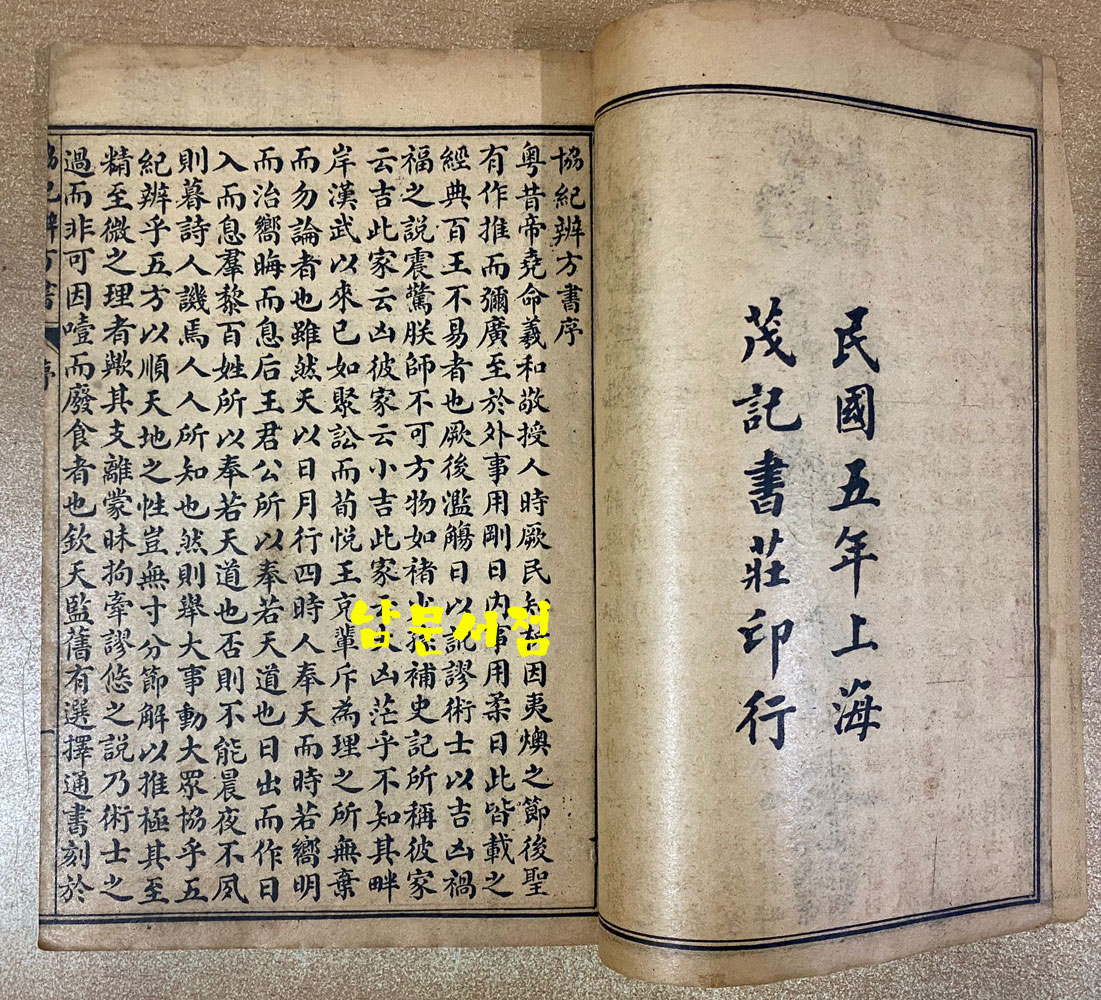 民國五年上海
茂記書莊印行
協紀辨方書序
粵昔帝堯命羲和敬授人時厥民因夷燠之節後聖
有作推而彌廣至於外事用剛日內事用柔日此皆載之
經典百王不易者也厥後濫觴日以訛謬術士以吉凶禍
福之說震驚朕師不可方物如褚少孫補史記所稱彼家
云吉此家云凶彼家云小吉此家云大凶茫乎不知其畔
岸漢武以來已如聚訟而荀悅王京輩斥為理之所無棄
而勿論者也雖然天以日月行四時人奉天而時若嚮明
而治嚮晦而息后王君公所以奉若天道也日出而作日
入而息羣黎百姓所以奉若天道也否則不能晨夜不夙
則暮詩人譏焉人人所知也然則舉大事動大眾協乎五
紀辨乎五方以順天地之性豈無寸分節解以推極其至
精至微之理者歟其支離蒙昧拘牽謬悠之說乃術士之
過而非可因噎而廢食者也欽天監舊有選擇通書刻於
協紀辨方書 序
남문서점